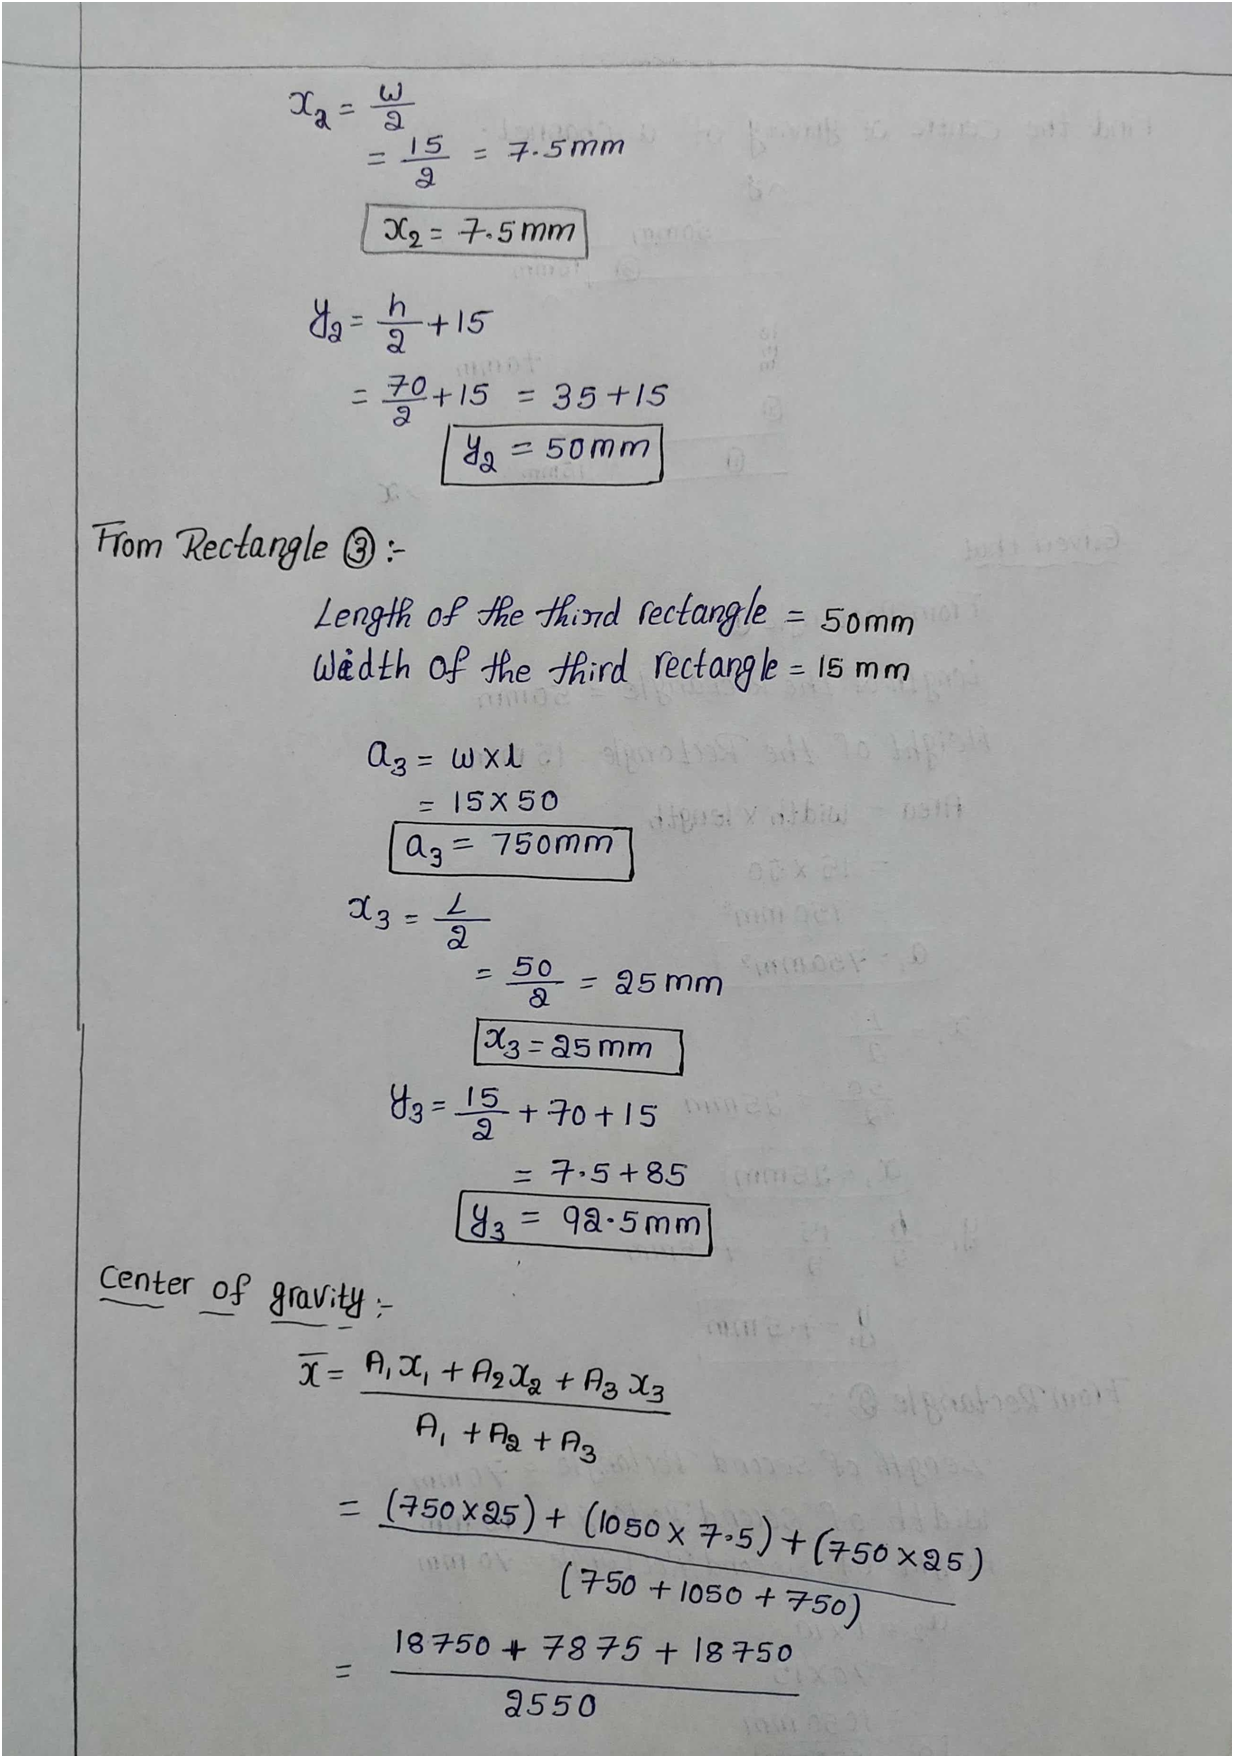 x₂ = w/2
= 15/2 = 7.5mm
x₂ = 7.5mm
y₂ = h/2 + 15
= 70/2 + 15 = 35 + 15
y₂ = 50mm
From Rectangle ③ :-
Length of the third rectangle = 50mm
Width of the third rectangle = 15 mm
a₃ = w x l
= 15 x 50
a₃ = 750mm
x₃ = L/2
= 50/2 = 25 mm
x₃ = 25 mm
y₃ = 15/2 + 70 + 15
= 7.5 + 85
y₃ = 92.5mm
Center of gravity :-
x̄ = A₁x₁ + A₂x₂ + A₃x₃
A₁ + A₂ + A₃
= (750 x 25) + (1050 x 7.5) + (750 x 25)
(750 + 1050 + 750)
= 18750 + 7875 + 18750
2550